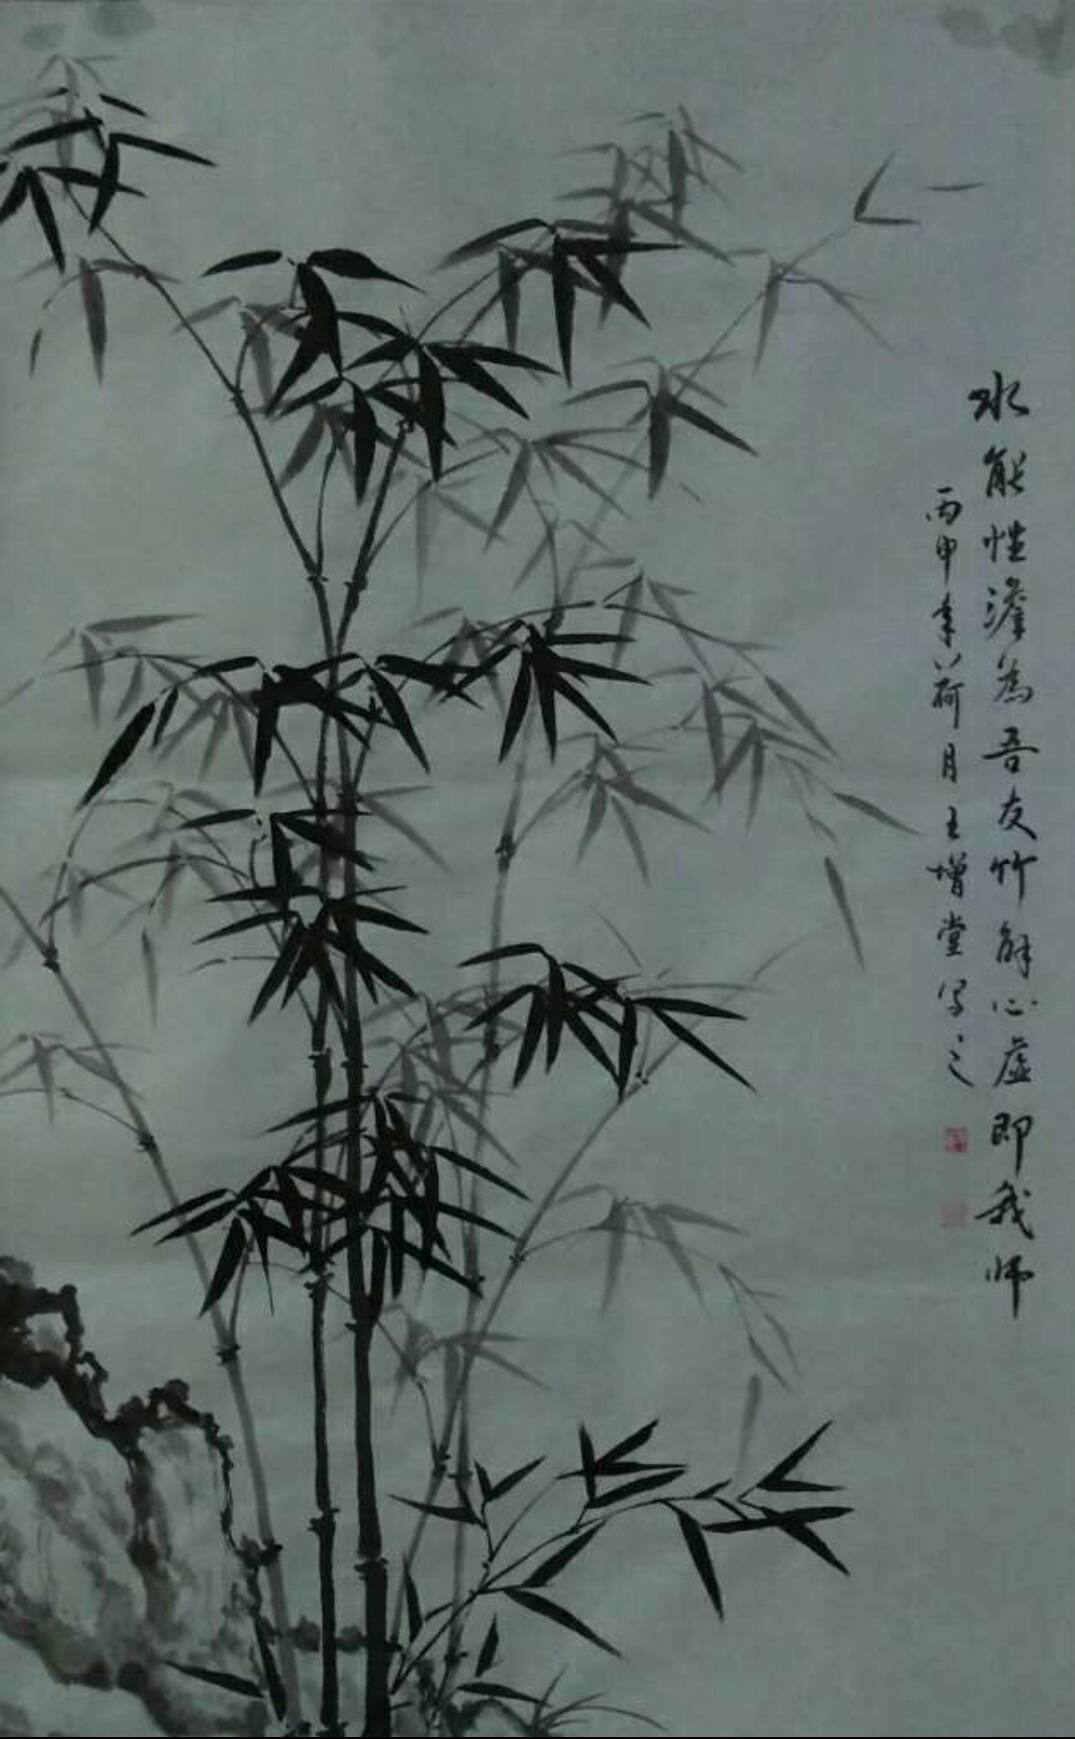 水能性澹為吾友竹解心虚即我师
丙申年荷月王增堂写之